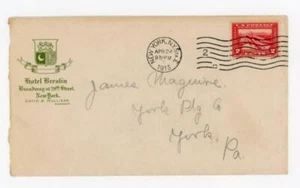 Hotel Breslin
Broadway at 29th Street,
New York.
NEW YORK, N.Y.
APR
PM
1913
2
James Maguire
York Bldg Co
York,
Pa.